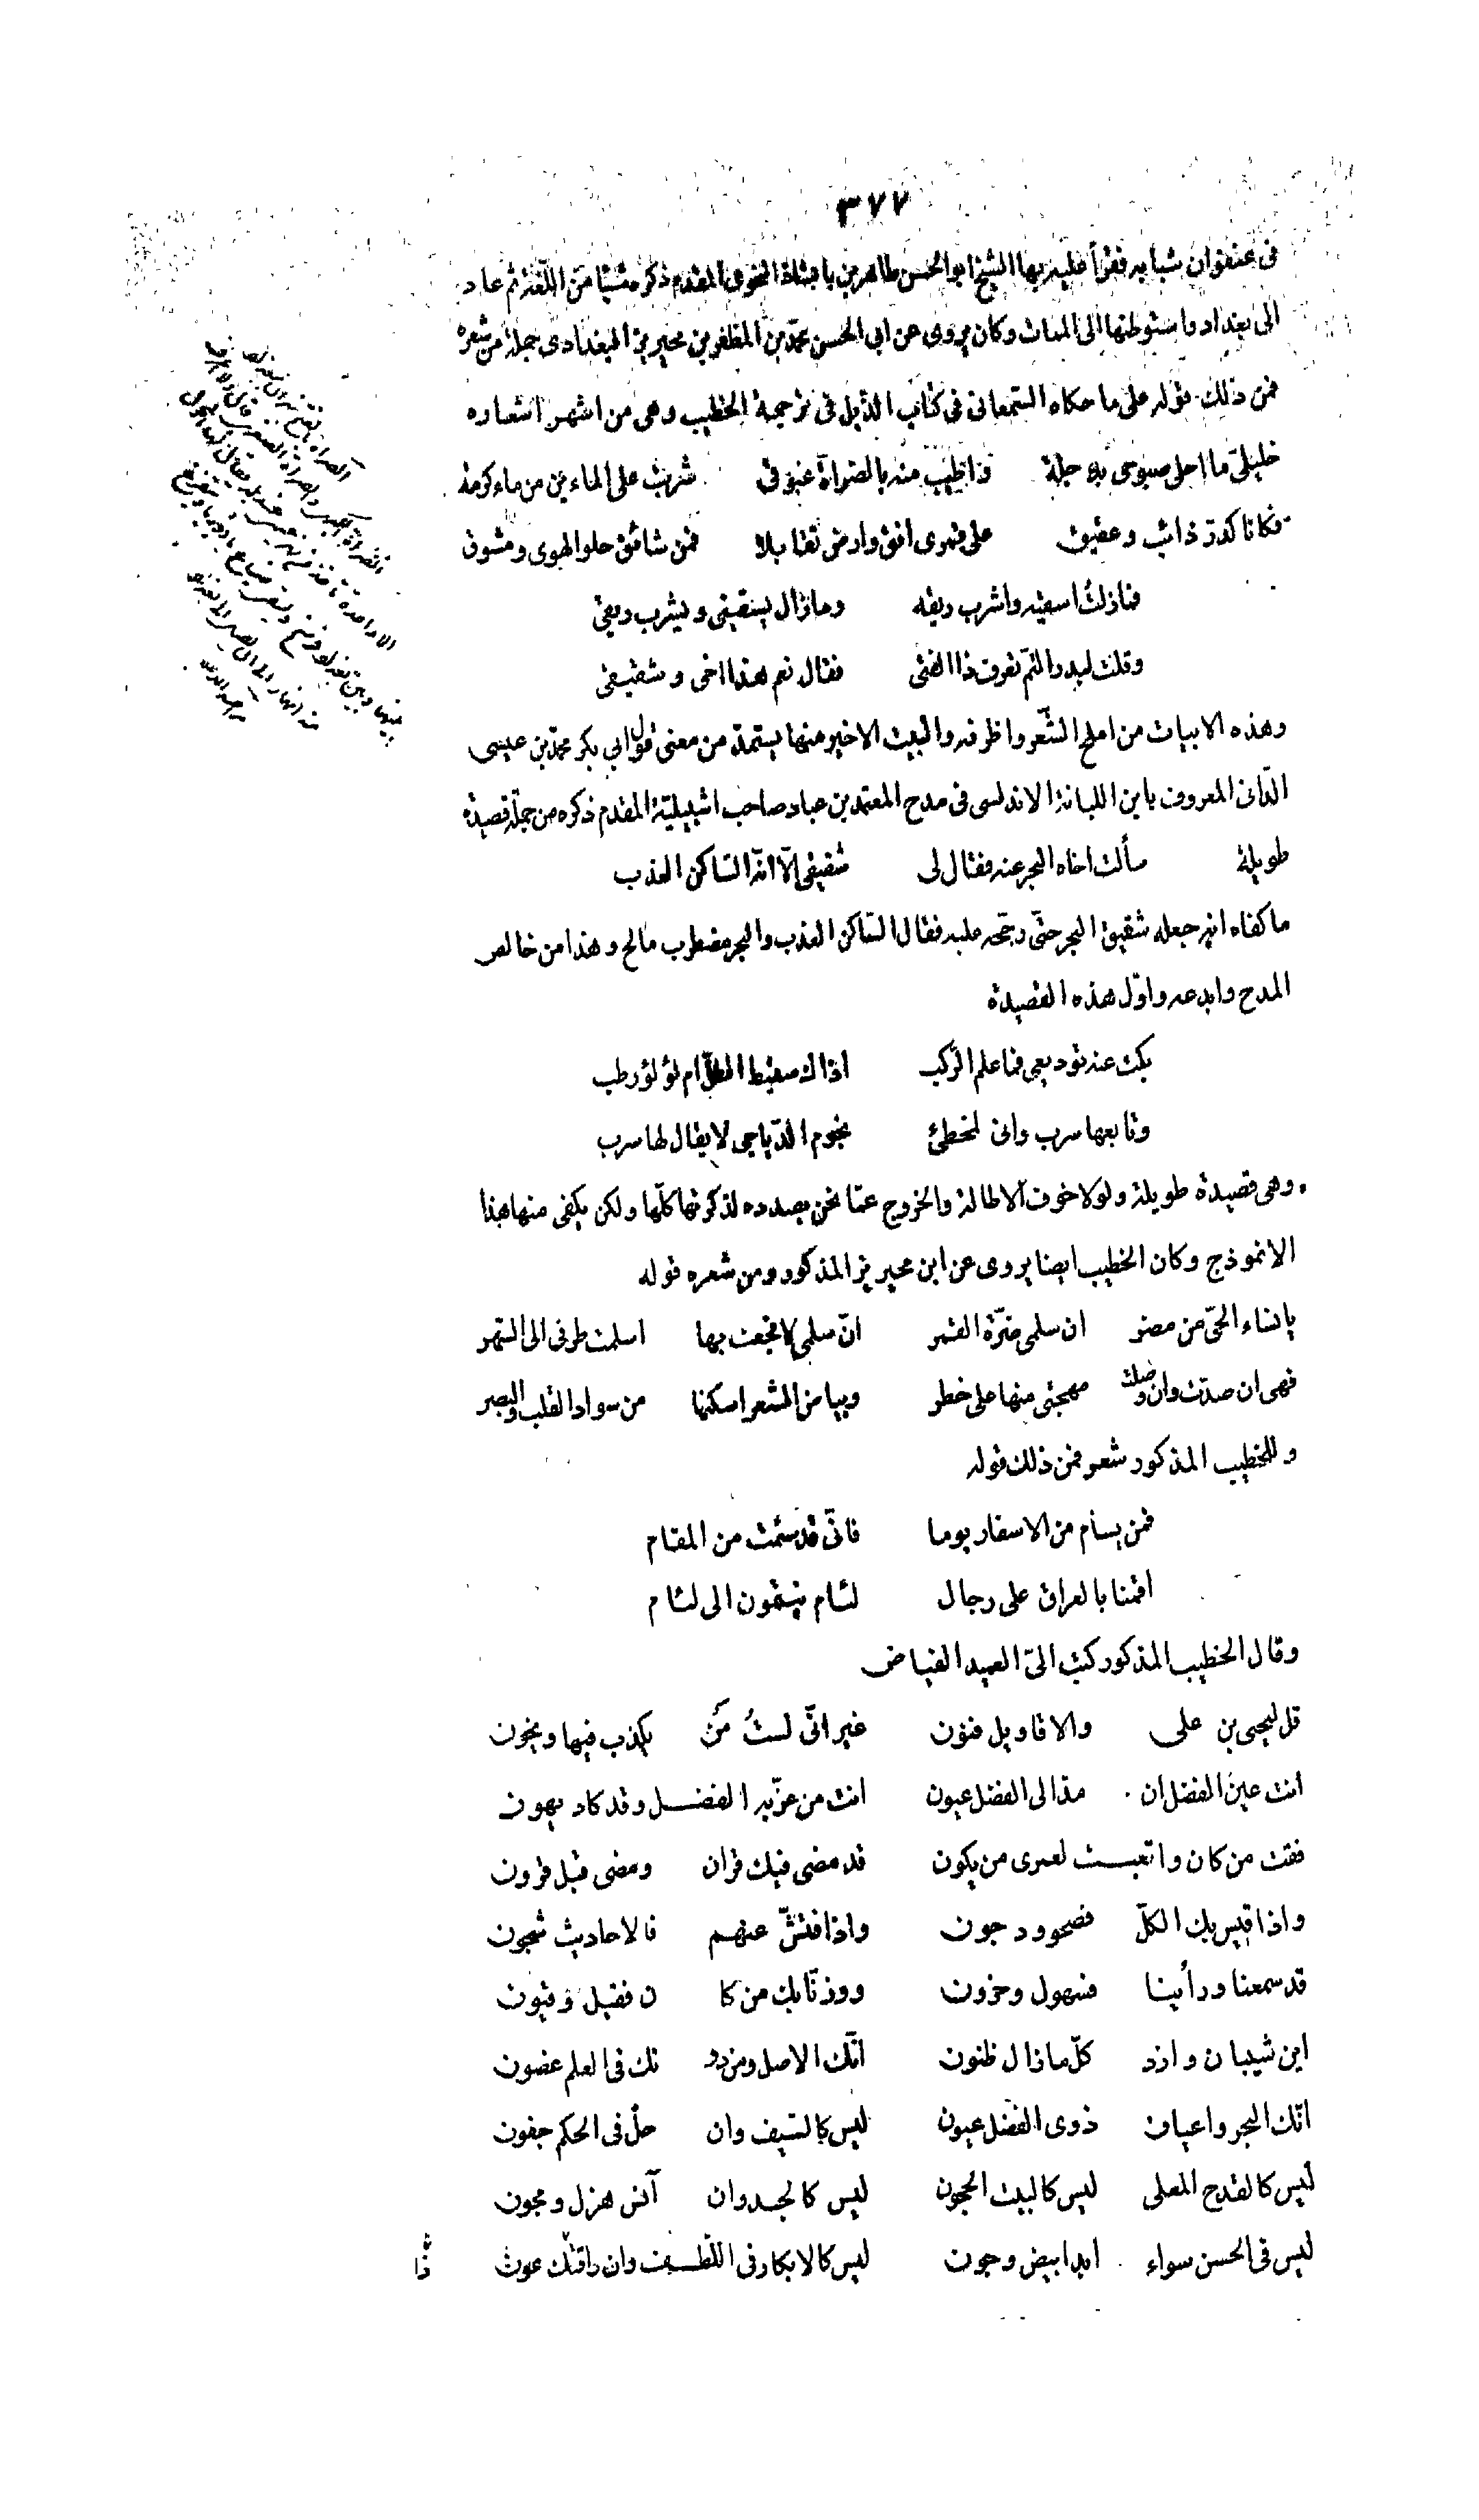 ٣٧٧
فى عنفوان شبابه فقرأ عليه بها الشيخ ابو الحسن طاهر بن بابشاذ النحوى المقدم ذكره شيئا من اللّغة ثم عاد
الى بغداد واستوطنها الى الممات وكان يروى عن ابى الحسن محمّد بن المظفر بن محيريز البغدادى جملة من شعره
فمن ذلك قوله على ما حكاه السّمعانى فى كتاب الذيل فى ترجمة الخطيب وهى من اشهر اشعاره
خليلىّ ما احلى صبوحى بدجلة واطيب منه بالصراة غبوقى شربت على الماءين من ماء كرمة
فكانا كدرّ ذائب وعقيق على قمرى افق وارض تقابلا فمن شائق حلو الهوى ومشوق
فمازلت اسقيه واشرب ريقه ومازال يسقينى ويشرب ريقى
وقلت لبدر التمّ تعرف ذا الفتى فقال نعم هذا اخى وشقيقى
وهذه الابيات من املح الشّعر واظرفه والبيت الاخير منها يستمدّ من معنى قول ابى بكر محمّد بن عيسى
الدّانى المعروف بابن اللبانة الاندلسى فى مدح المعتمد بن عباد صاحب اشبيليّة المقدم ذكره من جملة قصيدة
طويلة سألت اخاه البحر عنه فقال لى شقيقى الّا انّه السّاكن العذب
ما كفاه انه جعله شقيق البحر حتّى رجّحه عليه فقال السّاكن العذب والبحر مضطرب مالح وهذا من خالص
المدح وابدعه واوّل هذه القصيدة
بكت عند توديعى فما علم الرّكب اذاك سقيط الطلّ ام لؤلؤ رطب
وتابعها سرب وانى لمخطئ نجوم الدّياجى لا يقال لها سرب
وهى قصيدة طويلة ولولا خوف الاطالة والخروج عمّا نحن بصدده لذكرتها كلّها ولكن يكفى منها هذا
الانموذج وكان الخطيب ايضا يروى عن ابن محيريز المذكور ومن شعره قوله
يانساء الحىّ من مضر ان سلمى ضرّة القمر انّ سلمى لا فجعت بها اسلمت طرفى الى السّهر
فهى ان صدّت وان وصلت مهجتى منها على خطر وبياض الشعر اسكنها من سواد القلب والبصر
وللخطيب المذكور شعر فمن ذلك قوله
فمن يسأم من الاسفار يوما فانّى قد سئمت من المقام
اقمنا بالعراق على رجال لئام ينتمون الى لئام
وقال الخطيب المذكور كتب الىّ العميد الفياض
قل ليحيى بن على والاقاويل فنون غير انّى لستُ مَن يكذب فيها ويخون
انت عين الفضل ان مدّ الى الفضل عيون انت من عزّ به الفضل وقد كاد يهون
فقت من كان واتعبت لعمرى من يكون قد مضى فيك قران ومضى قبل قرون
واذا قيس بك الكلّ فصحو ودجون واذا فتشّ عنهم فالاحاديث شجون
قد سمعنا ورأينا فسهول وحزون ووزنّا بك من كا ن فقيل وقيون
اين شيبان وازد كلّ مازال ظنون انّك الاصل ومن دو نك فى العلم غصون
انّك البحر واعيان ذوى الفضل عيون ليس كالسّيف وان حلّ فى الحكم جفون
ليس كالقدح المعلى ليس كالبيت الحجون ليس كالجد وان آنس هزل ومجون
ليس فى الحسن سواء ابدا بيض وجون ليس كالابكار فى اللّطف وان راقتك عون